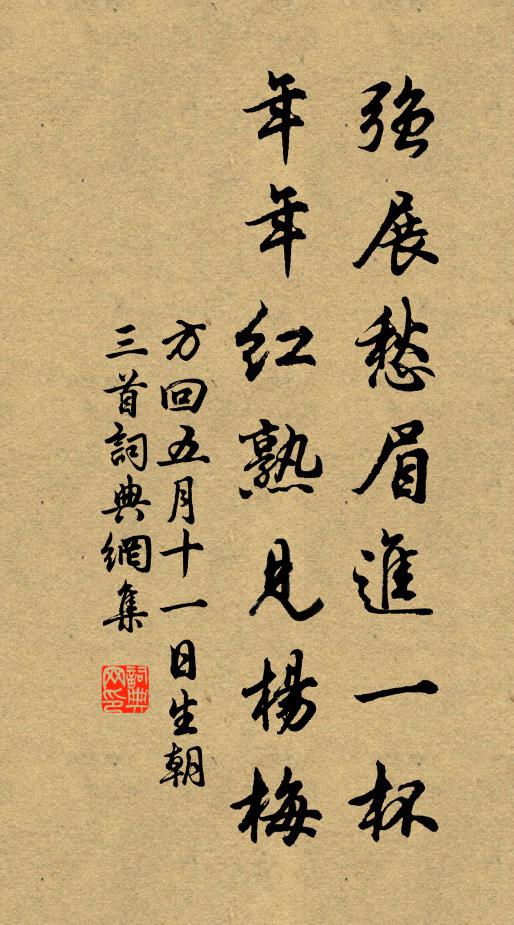 強展愁眉進一杯
年年紅熟見楊梅
方回五月十一日生朝
三首詞典網集
詞典网印